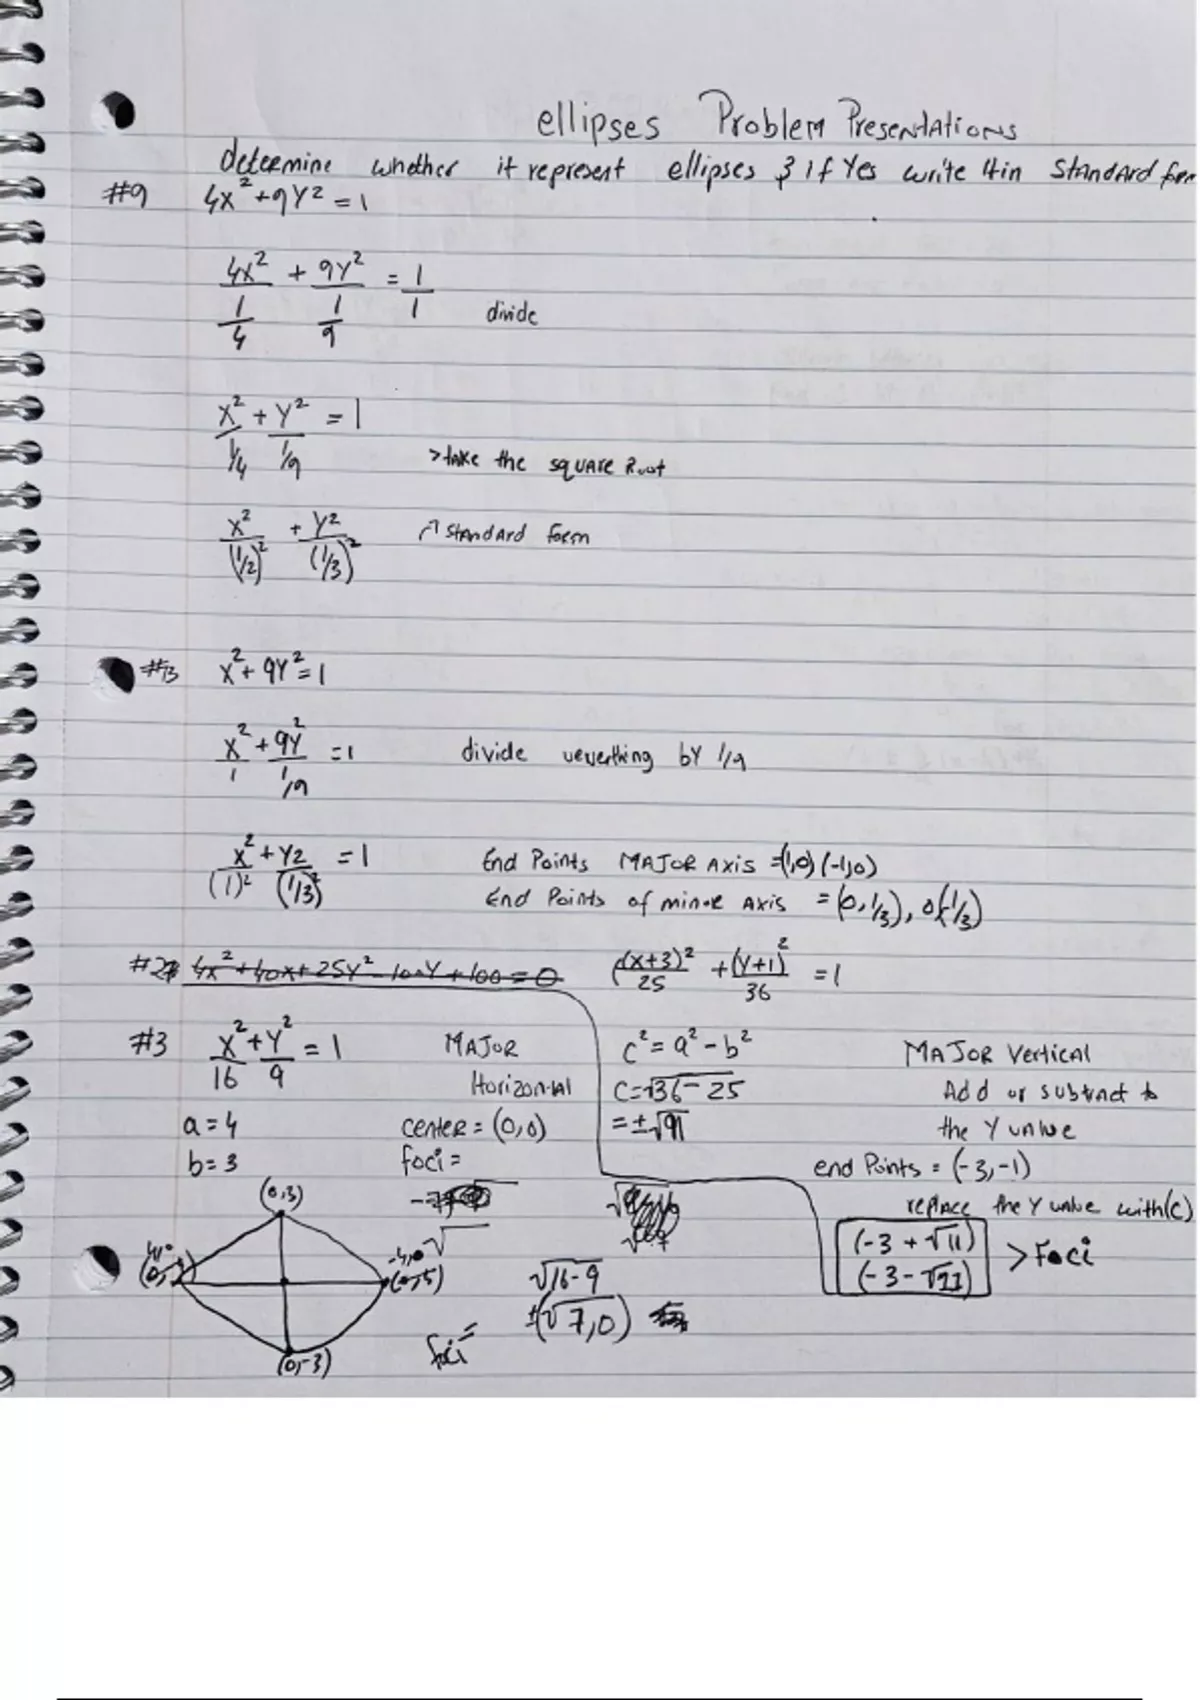 ellipses Problem Presentations
determine whether it represent ellipses & if Yes write it in Standard form
#9 4x² + 9Y² = 1
4x²/(1/4) + 9Y²/(1/9) = 1/1 divide
x²/(1/4) + Y²/(1/9) = 1
>take the square Root
x²/(1/2)² + Y²/(1/3)² Standard form
#13 x² + 9Y² = 1
x²/1 + 9Y²/(1/9) = 1 divide ueverthing by 1/9
x²/(1)² + Y2/(1/3)² = 1 End Points MAJOR AXIS = (1,0) (-1,0)
End Points of minor AXIS = (0, 1/3), 0(-1/3)
4x² + 40x + 25Y² - 100Y + 100 = 0
(x+3)²/25 + (Y+1)²/36 = 1
#3 x²/16 + Y²/9 = 1
MAJOR
Horizontal
a = 4 center = (0,0)
b = 3 foci =
(0,3)
(0,-3)
√16-9
foci = ±(√7,0)
c² = a² - b²
c = √36 - 25
= ±√11
MAJOR Vertical
Add or subtract to
the Y value
end Points = (-3,-1)
replace the Y value with(c)
(-3 + √11)
(-3 - √11) > Foci